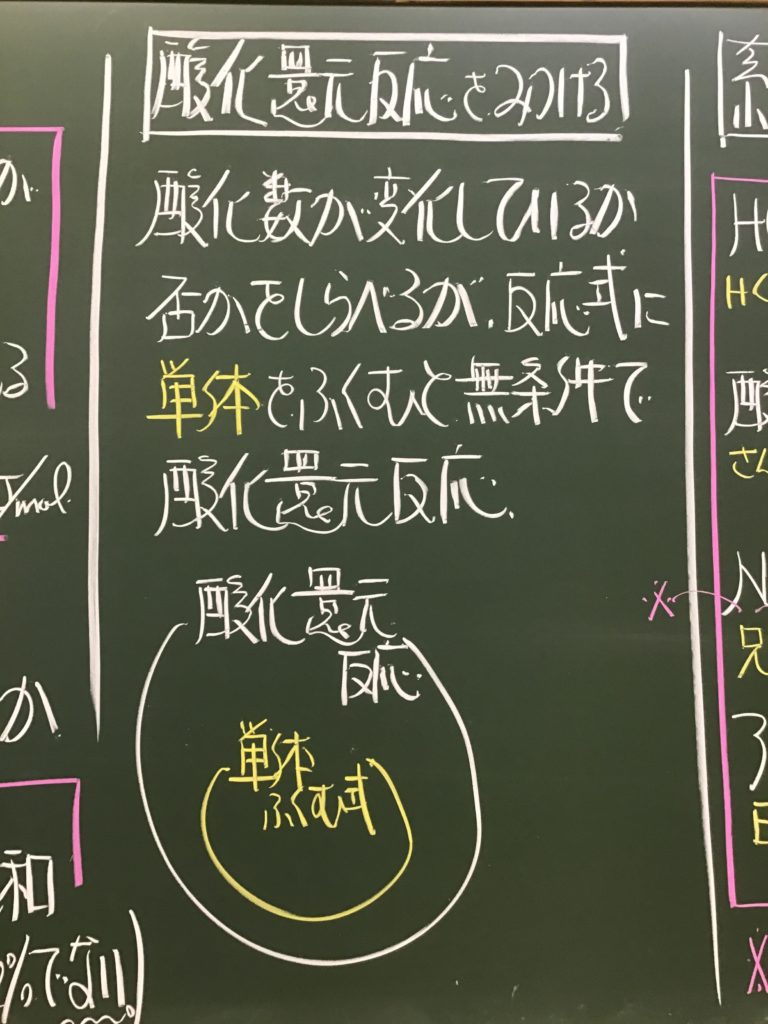 酸化還元反応をみつける
酸化数が変化しているか
否かをしらべるが、反応式に
単体をふくむと無条件で
酸化還元反応.
酸化還元
反応
単体
ふくむ式
が
る
J/mol
か
和
%でない)
系
H
H
酸
さん
N
兄